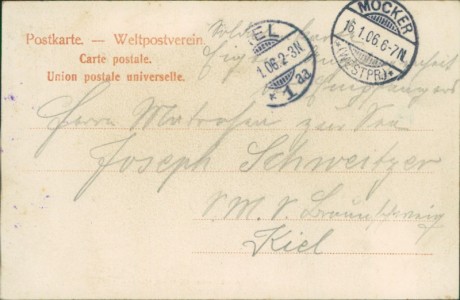 Postkarte. — Weltpostverein.
Carte postale.
Union postale universelle.
MOCKER
16.1.06.6-7N.
*(WESTPR.)*
KIEL
1.06.2-3N
* 1 aa
Herrn Matrosen zur See
Joseph Schweitzer
S.M.S. Braunschweig
Kiel